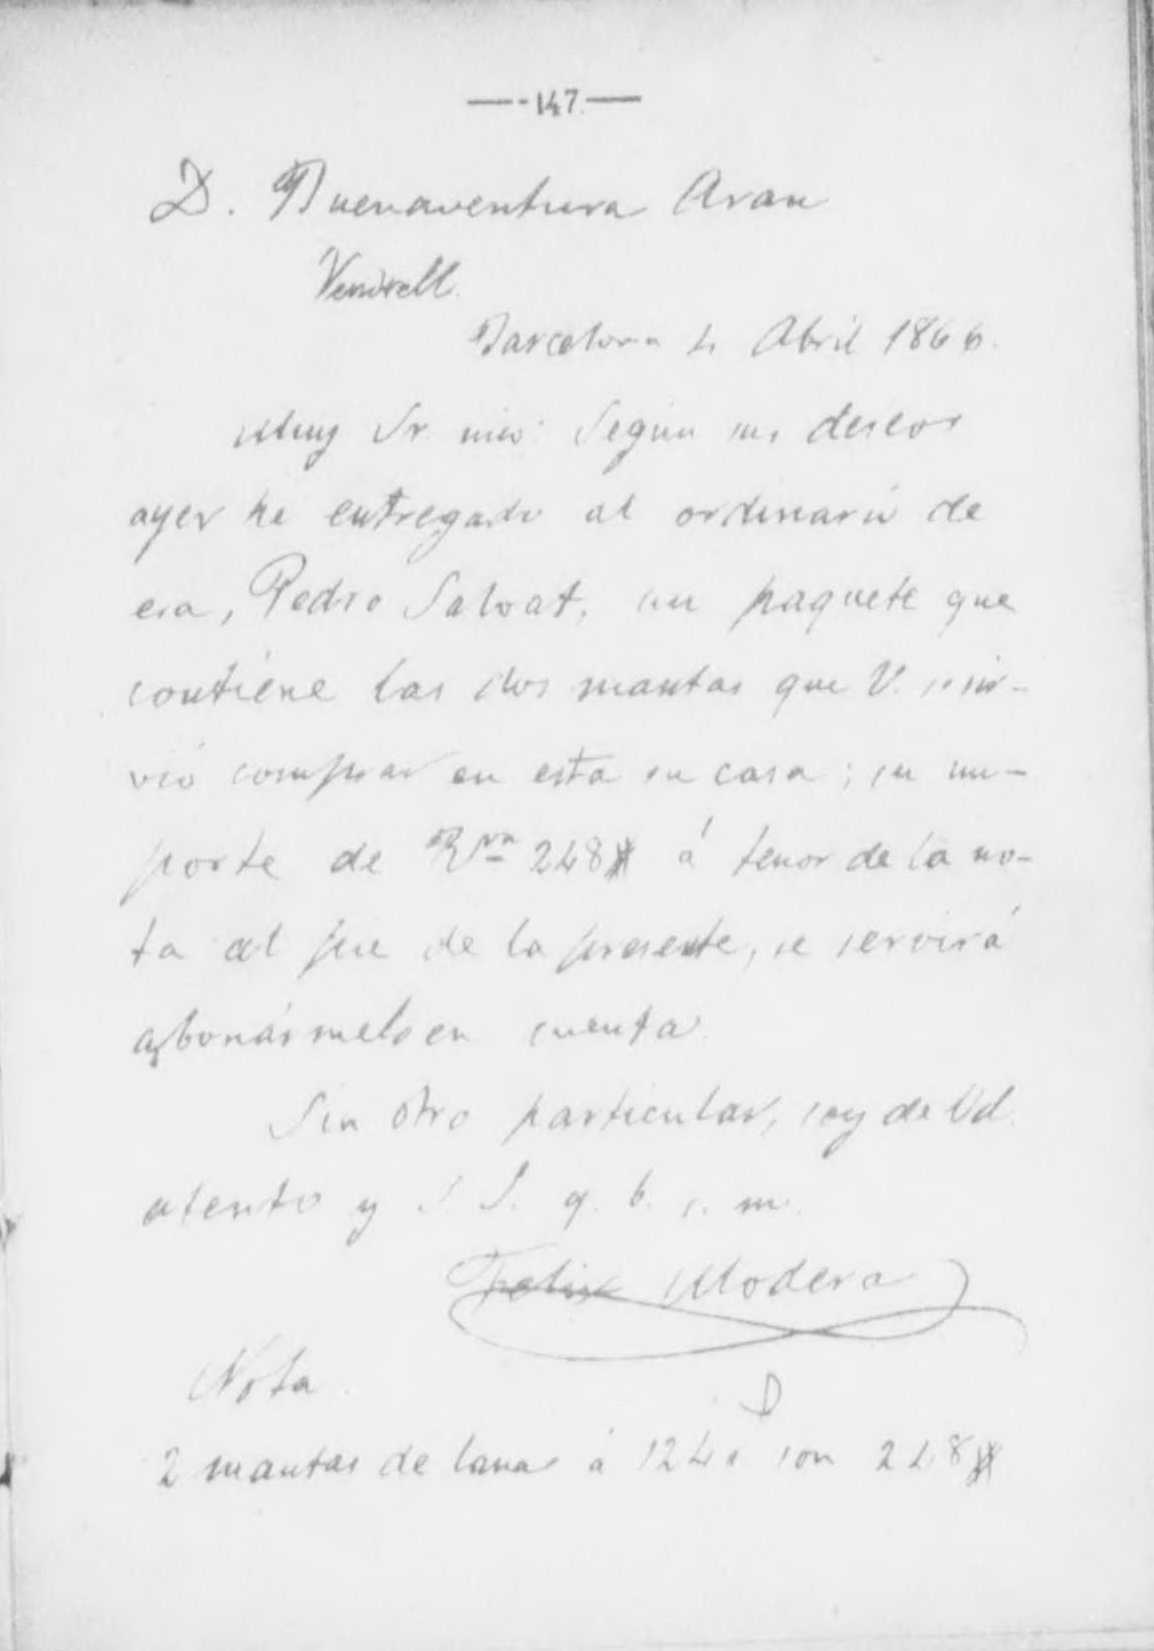 — 147. —
D. Buenaventura Aran
Vendrell.
Barcelona 4 Abril 1866.
Muy Sr. mio: Segun sus deseos
ayer he entregado al ordinario de
esa, Pedro Salvat, un paquete que
contiene las dos mantas que V. se sir-
vió comprar en esta su casa; su im-
porte de Rs vn 248 # á tenor de la no-
ta al pie de la presente, se servirá
abonármelo en cuenta.
Sin otro particular, soy de Vd.
atento y S. S. q. b. s. m.
Felix Modera
Nota.
2 mantas de lana á 124 son 248 #